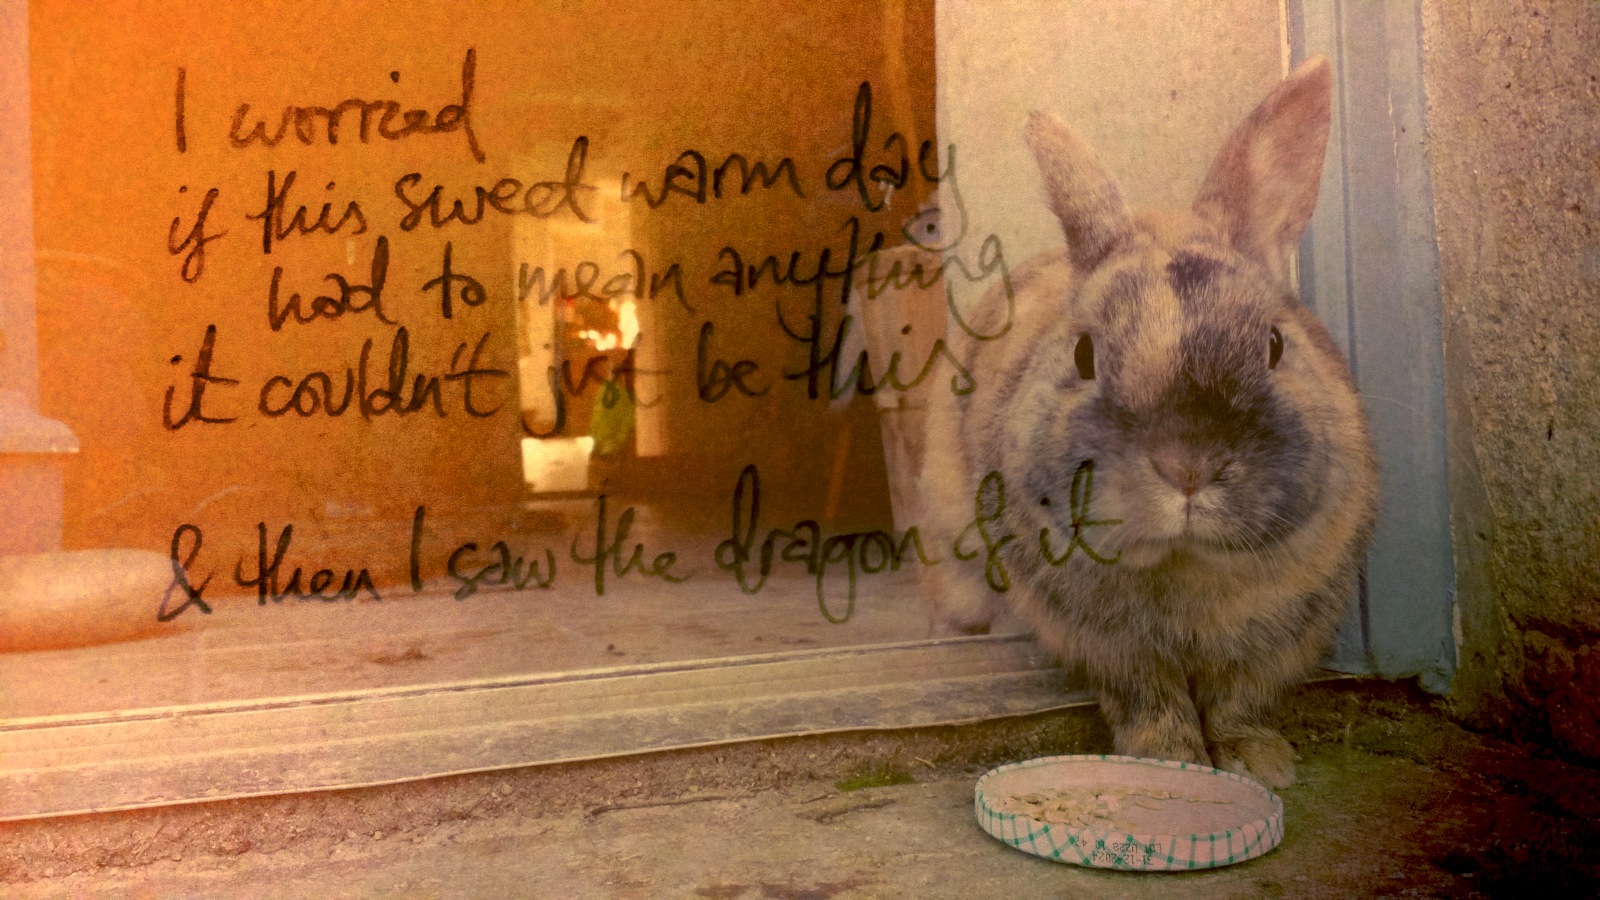 I worried
if this sweet warm day
had to mean anything
it couldn't just be this
& then I saw the dragon & it
31-12-2024
LOT U228 10 47